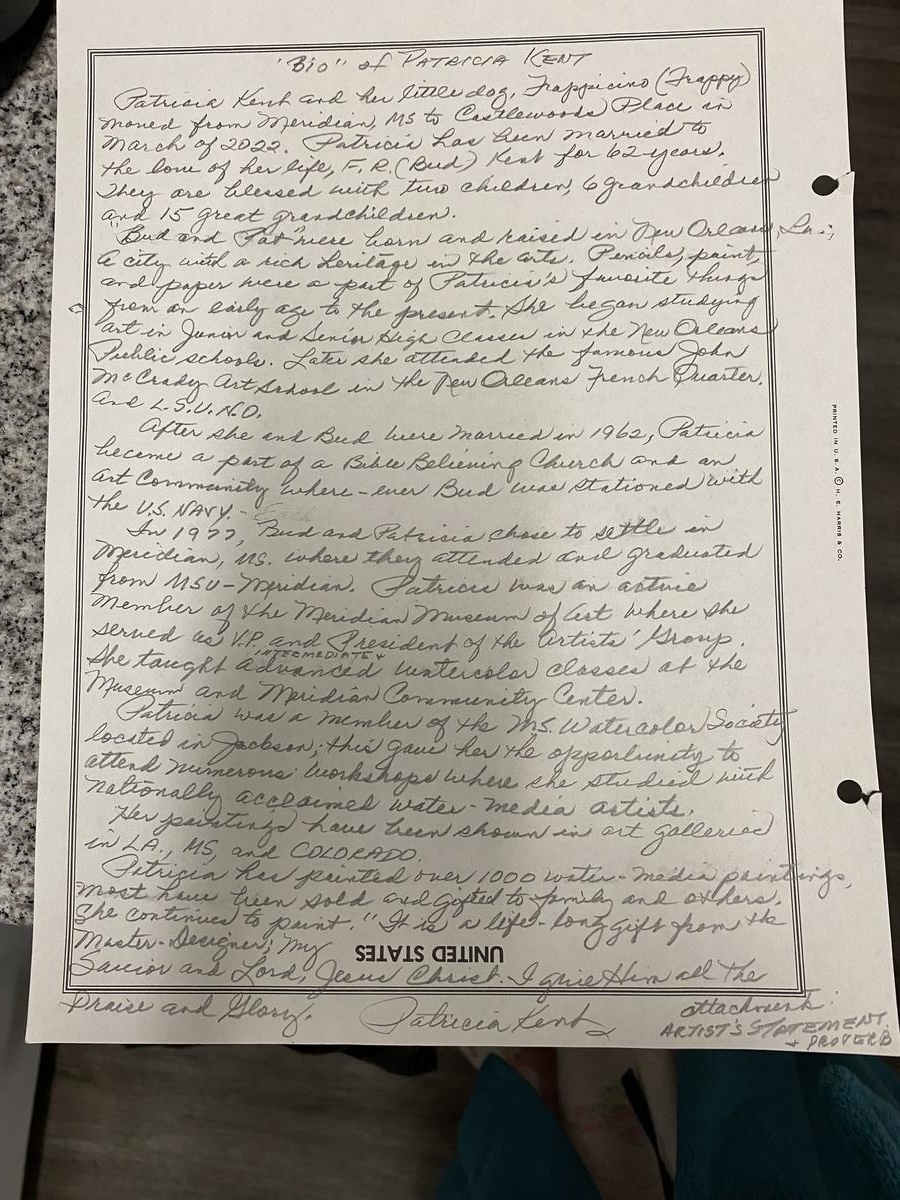 "Bio" of PATRICIA KENT
Patricia Kent and her little dog, Frappicino (Frappy)
moved from Meridian, MS to Castlewoods Place in
March of 2022. Patricia has been married to
the love of her life, F.R. (Bud) Kent for 62-years.
They are blessed with two children, 6 grandchildren
and 15 great grandchildren.
"Bud and Pat" were born and raised in New Orleans, La.;
A city with a rich heritage in the arts. Pencils, paint,
and paper were a part of Patricia's favorite things
from an early age to the present. She began studying
art in Junior and Senior High Classes in the New Orleans
Public schools. Later she attended the famous John
McCrady Art School in the New Orleans French Quarter.
And L.S.U.N.O.
After she and Bud were married in 1962, Patricia
became a part of a Bible Believing Church and an
art Community where-ever Bud was stationed with
the U.S. NAVY.-
In 1977, Bud and Patricia chose to settle in
Meridian, MS. where they attended and graduated
from MSU-Meridian. Patricia was an active
Member of the Meridian Museum of Art where she
served as V.P. and President of the Artists' Group.
INTERMEDIATE +
She taught Advanced watercolor classes at the
Museum and Meridian Community Center.
Patricia was a member of the MS. Watercolor Society
located in Jackson; this gave her the opportunity to
attend numerous workshops where she studied with
nationally acclaimed water-media artists.
Her paintings have been shown in art galleries
in LA., MS, and COLORADO.
Patricia has painted over 1000 water-media paintings,
most have been sold and gifted to family and others.
She continues to paint. "It is a life-long gift from the
Master-Designer; My
UNITED STATES
Savior and Lord, Jesus Christ. I give Him all the
Praise and Glory.
Patricia Kent
attachment:
ARTIST'S STATEMENT.
+ PROVERB
PRINTED IN U.S.A. © H. E. HARRIS & CO.